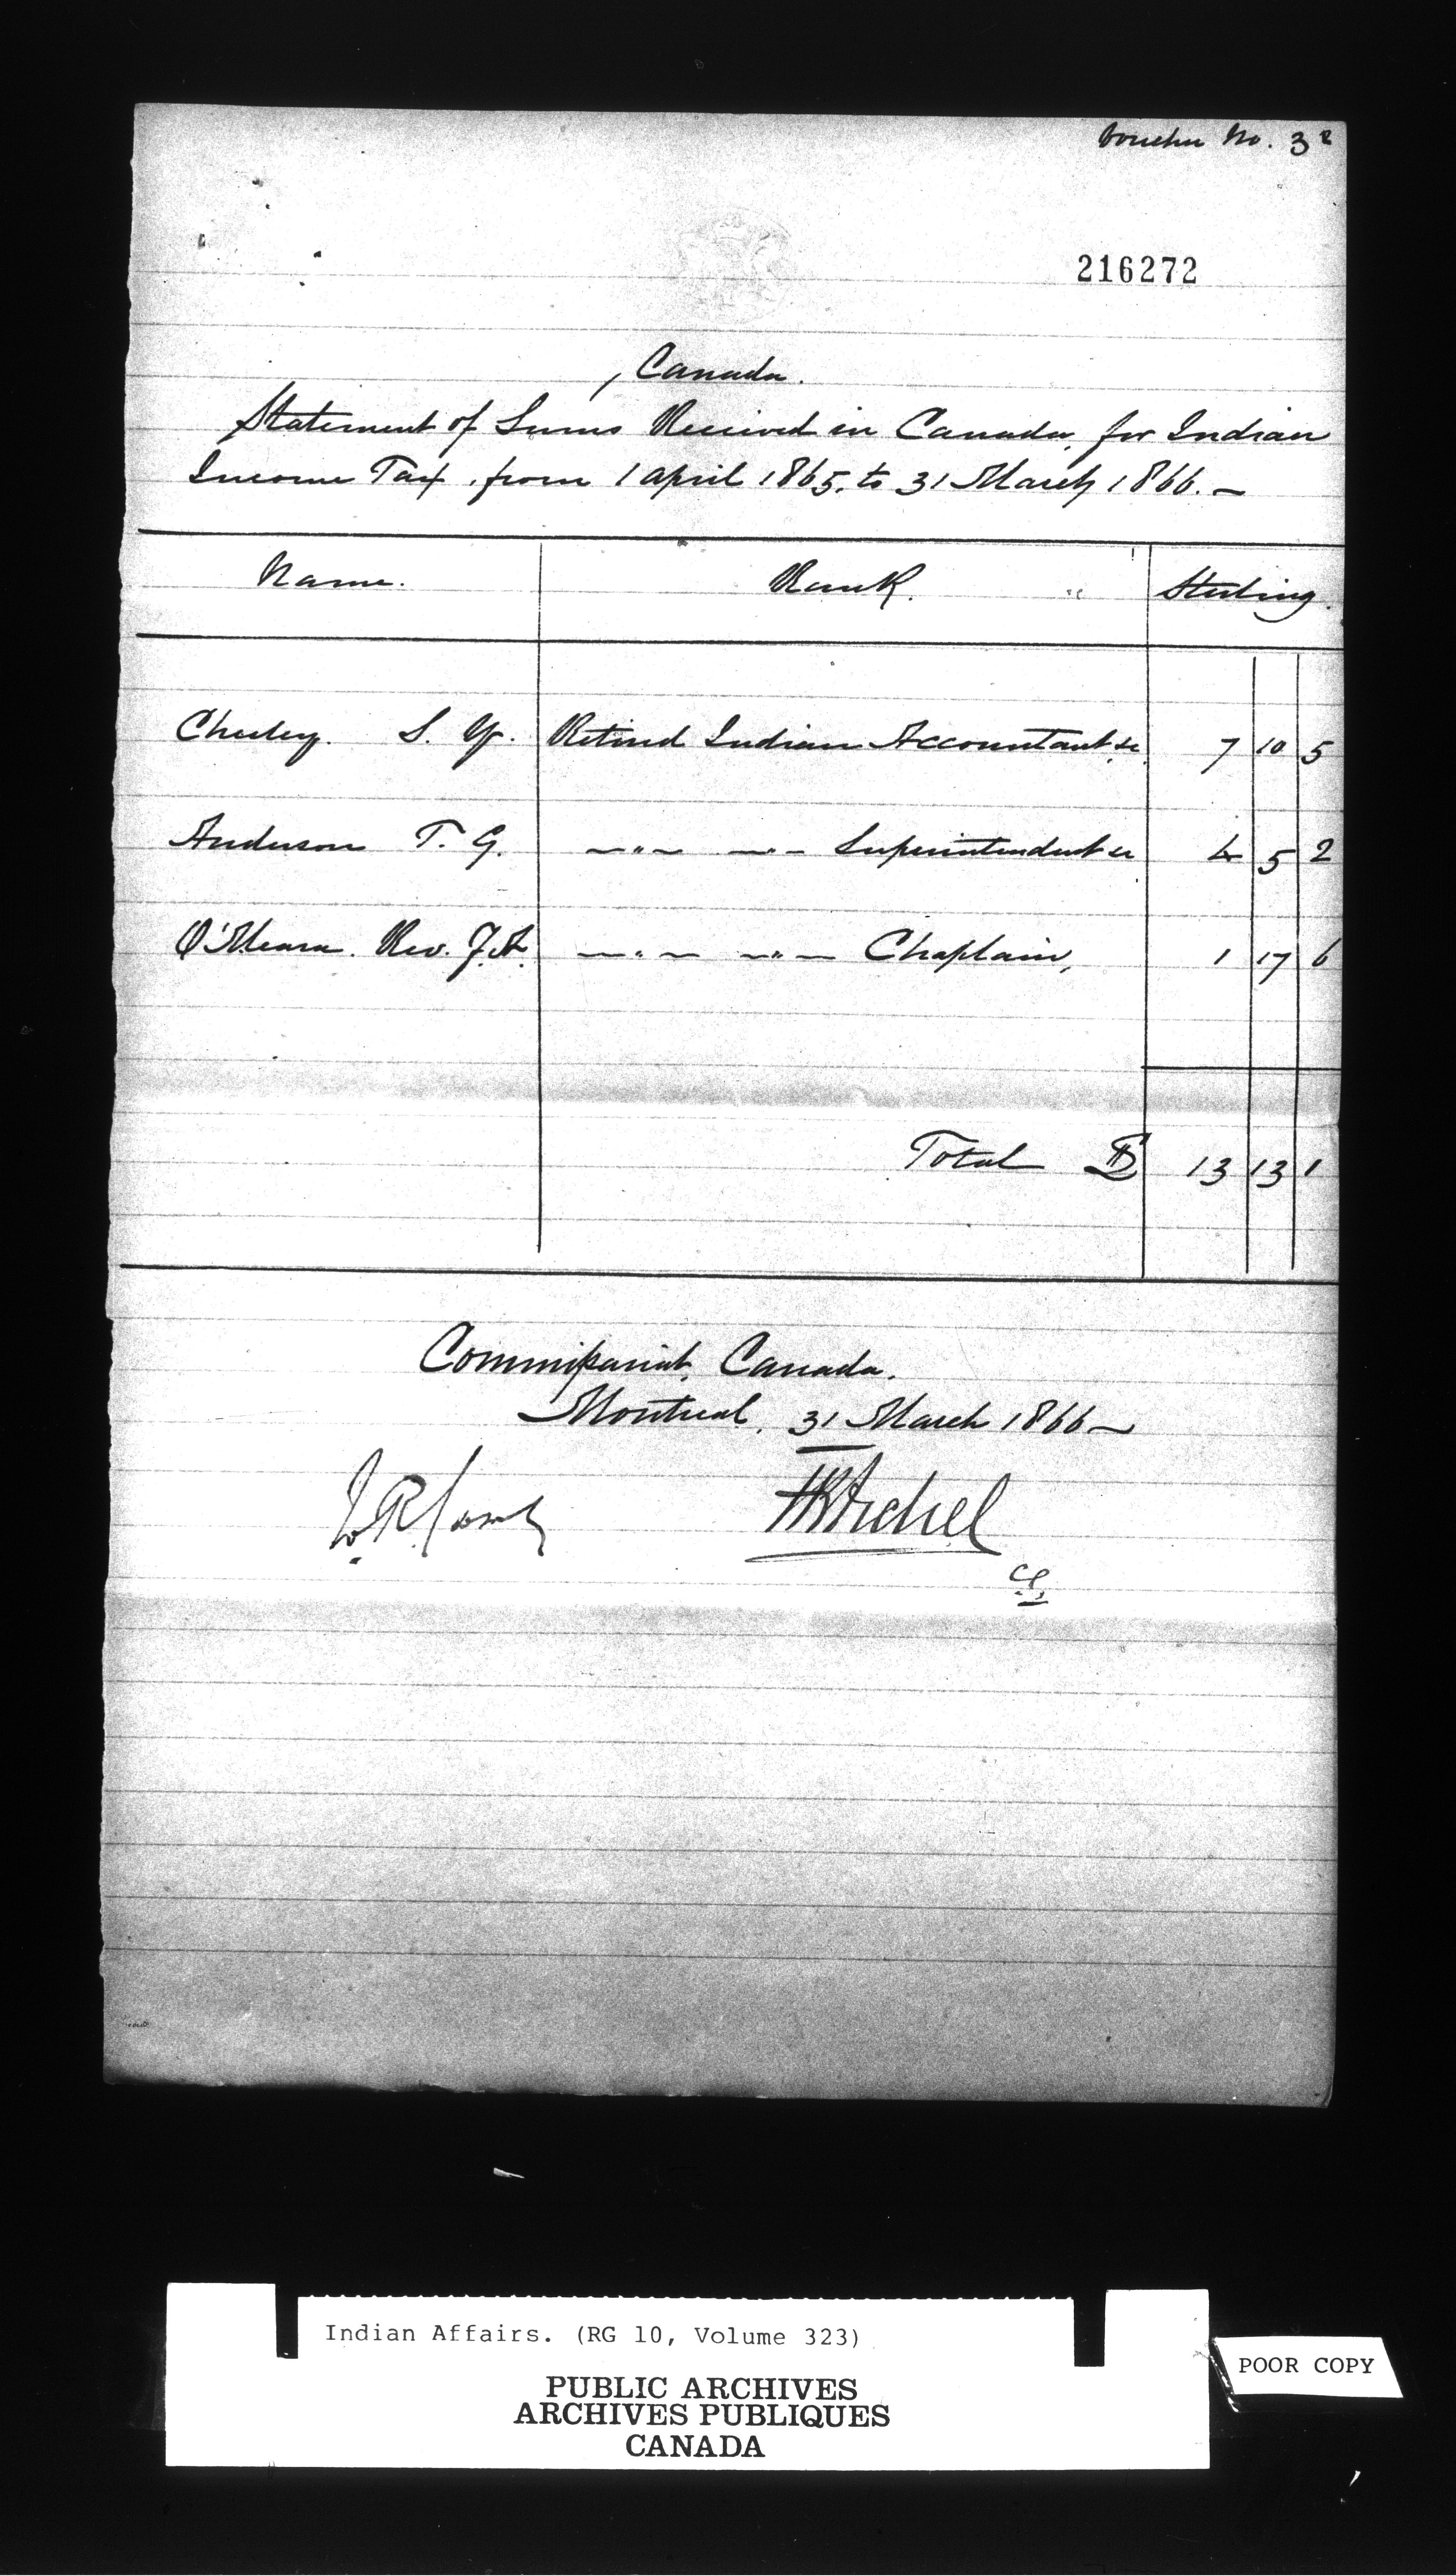 Voucher No. 3
216272
Canada.
Statement of Sums Received in Canada, for Indian
Income Tax, from 1 April 1865, to 31 March 1866. —
Name. Rank. Sterling.
Chesley. S. Y. Retired Indian Accountant &c 7 10 5
Anderson T. G. —"— —"— Superintendent &c 4 5 2
O'Meara. Rev. F. A. —"— —"— Chaplain, 1 17 6
Total £ 13 13 1
Commissariat, Canada.
Montreal, 31 March 1866 —
Indian Affairs. (RG 10, Volume 323)
PUBLIC ARCHIVES
ARCHIVES PUBLIQUES
CANADA
POOR COPY